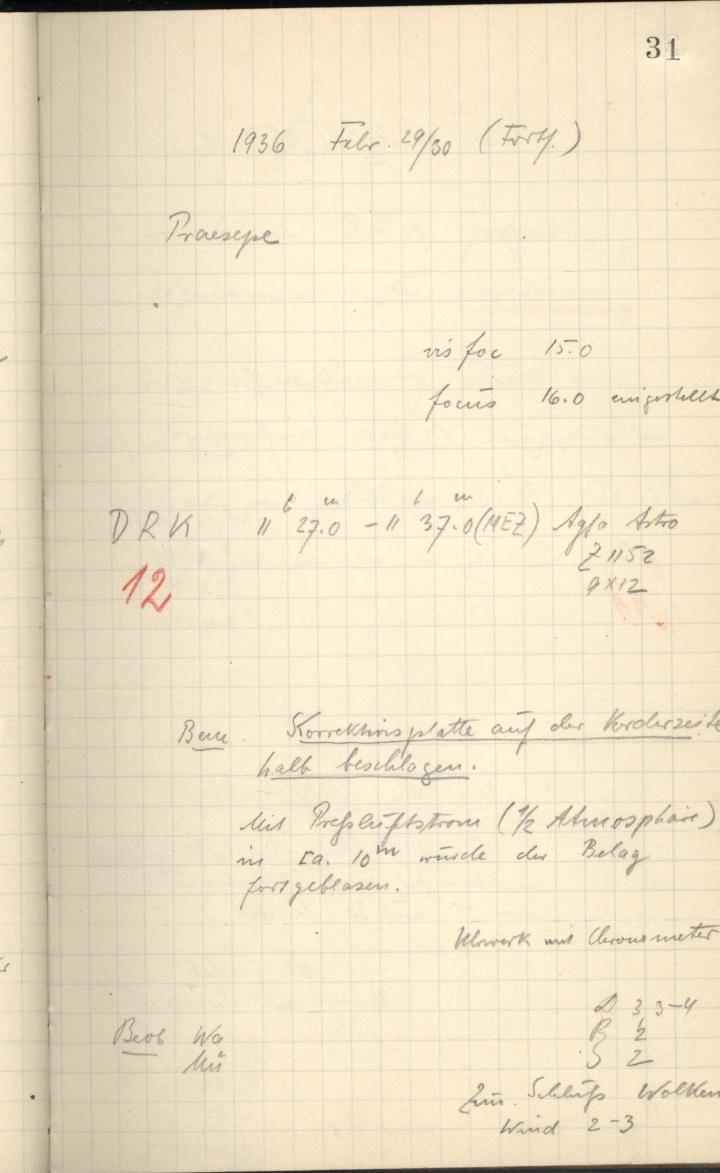 31
1936 Febr. 29/30 (Forts.)
Praesepe
vis foc 15.0
focus 16.0 eingestellt
DRK 11h 27.0m - 11h 37.0m (MEZ) Agfa Astro
Z 1152
9x12
12
Bem. Korrektionsplatte auf der Vorderseite
halb beschlagen.
Mit Preßluftstrom (1/2 Atmosphäre)
in ca. 10m wurde der Belag
fortgeblasen.
Uhrwerk mit Chronometer
D 3 3-4
Beob Wa R 2
Mü S 2
Zum Schluß Wolken
Wind 2-3